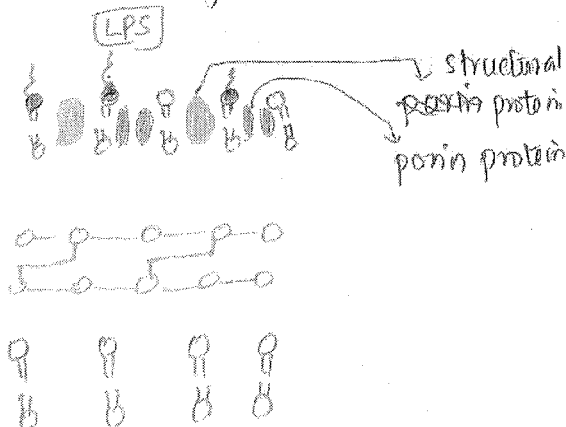 LPS
structural
protein
porin protein